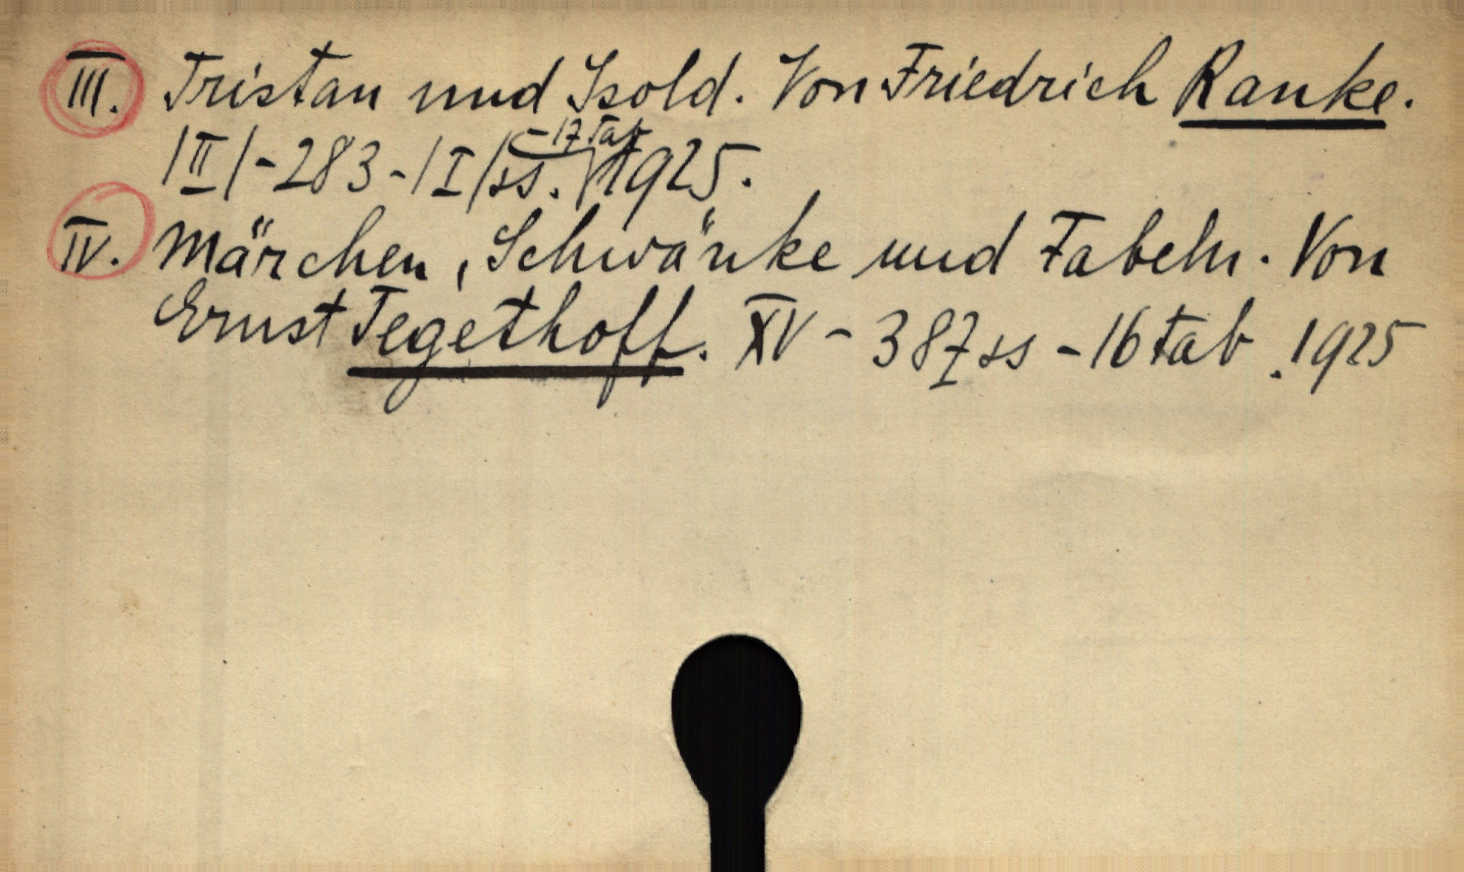 III. Tristan und Isold. Von Friedrich Ranke.
|II|-283-|I|ss. -17 tab 1925.
IV. Märchen, Schwänke und Fabeln. Von
Ernst Tegethoff. XV - 387 ss - 16 tab. 1925